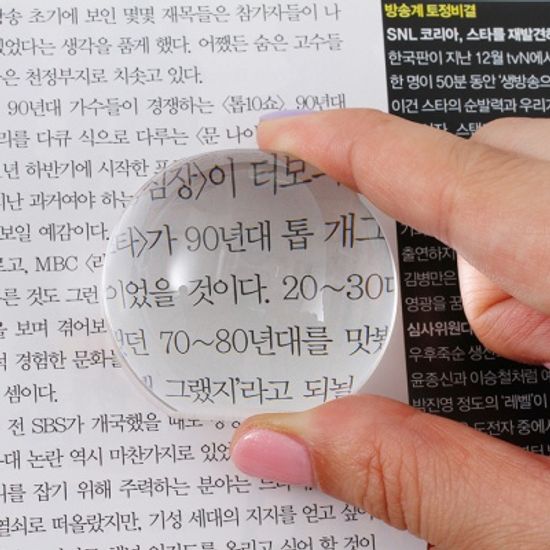 방송 초기에 보인 몇몇 재목들은 참가자들이 나
있었다는 생각을 품게 했다. 어쨌든 숨은 고수들
은 천정부지로 치솟고 있다.
90년대 가수들이 경쟁하는 〈톱10쇼〉 90년대
리를 다큐 식으로 다루는 〈문 나이
년 하반기에 시작한
지난 과거여야 하는
보일 예감이다.
르고, MBC
른 것도 그런
을 보며 겪어보
경험한 문화를
셈이다.
전 SBS가 개국했을 때도
대 논란 역시 마찬가지로 있었
를 잡기 위해 주력하는 분야는
열쇠로 떠올랐지만, 기성 세대의 지지를 얻고 싶어
올리고 싶어 할 것이
장〉이 더
타〉가 90년대 톱 개그
이었을 것이다. 20~30대
했던 70~80년대를 맛
그랬지'라고 되뇔
방송계 토정비결
SNL 코리아, 스타를 재발견하
한국판이 지난 12월 tvN에서
한 명이 50분 동안 '생방송으
이건 스타의 순발력과 우리
출연하지
김병만은
영광을 꿈
심사위원대
우후죽순 생
윤종신과 이승철처럼 여
박진영 정도의 '레벨'이
도전자 중에서